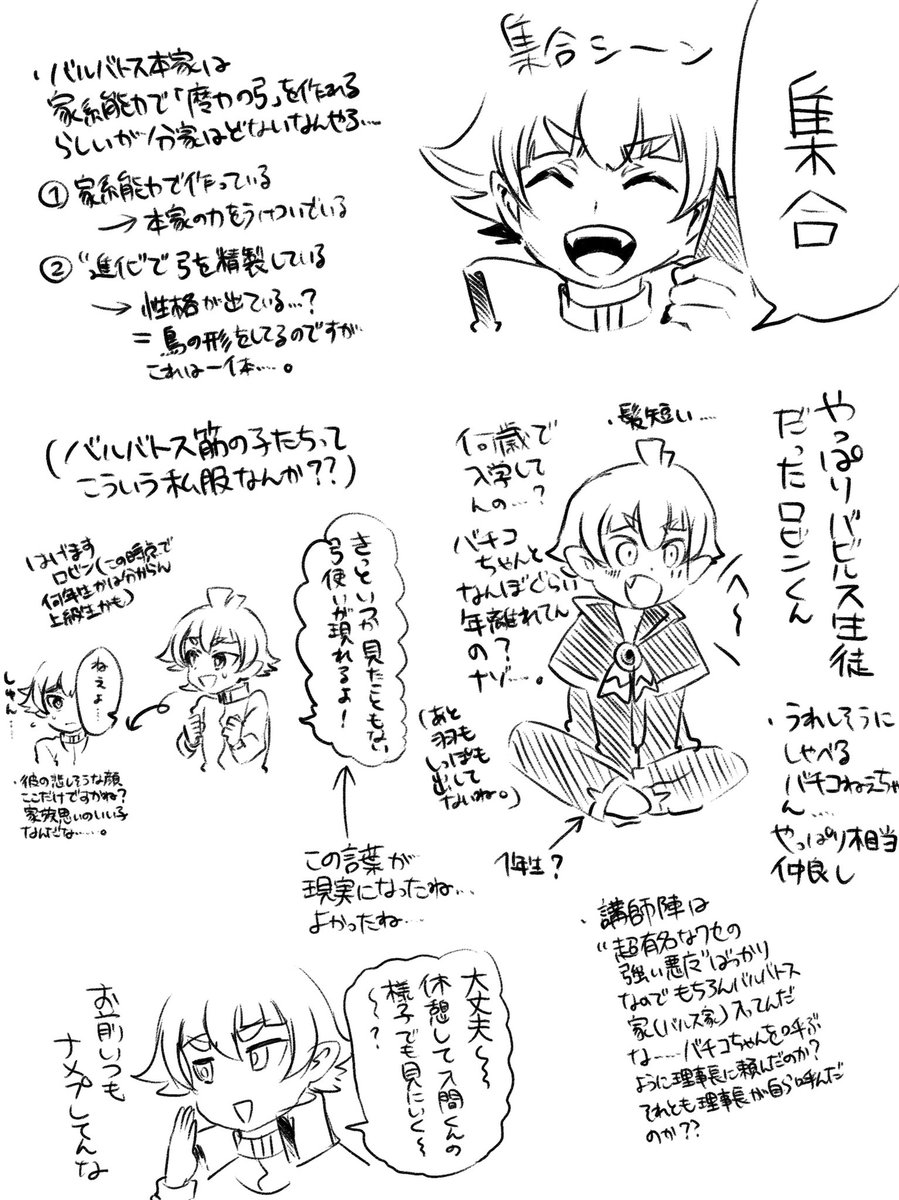 集合シーン
集合
・バルバトス本家は
家系能力で「魔力の弓」を作れる
らしいが分家はどないなんやろ…
① 家系能力で作っている
→ 本家の力をうけついでいる
② "進化"で弓を精製している
→ 性格が出ている…?
= 鳥の形をしてるのですが
これは一体……。
(バルバトス筋の子たちって
こういう私服なんか??)
やっぱりバビルス生徒
だったロビンくん
・髪短い……
何歳で
入学して
んの……?
バチコ
ちゃんと
なんぼぐらい
年離れてん
の?
ナゾ……。
(あと
羽も
しっぽも
出して
ないね。)
1年生?
・うれしそうに
しゃべる
バチコねぇちゃ
ん……
やっぱり相当
仲良し
きっといつか見たこともない
弓使いが現れるよ!
はげます
ロビン(この時点で
何年生かは分からん
上級生かも)
ねぇよ…
しゅん…
・彼の悲しそうな顔
ここだけですかね?
家族思いのいい子
なんだな……。
この言葉が
現実になったね…
よかったね…
・講師陣は
"超有名なクセの
強い悪魔"ばっかり
なのでもちろんバルバトス
家(バルス家)入ってんだ
な……バチコちゃんを呼ぶ
ように理事長に頼んだのか?
それとも理事長が自ら呼んだ
のか??
大丈夫〜〜
休憩して入間くんの
様子でも見にいく〜
〜〜?
お前いつも
ナメプしてんな